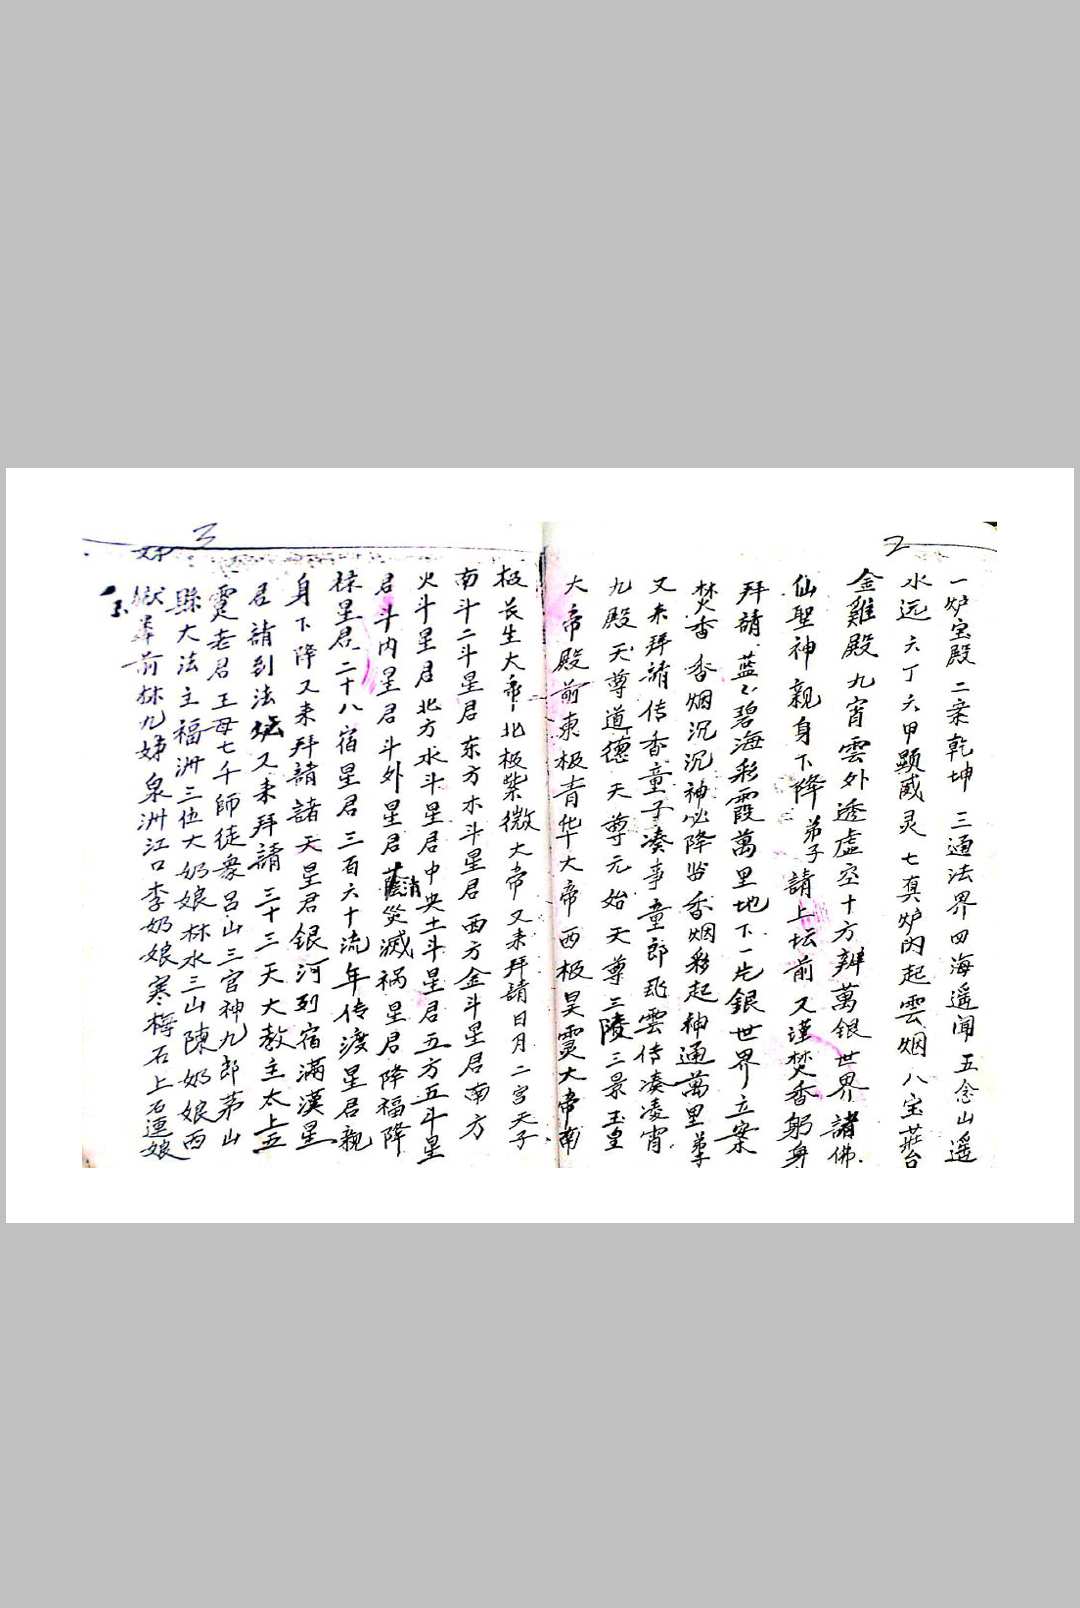 2
一炉宝殿 二案乾坤 三通法界 四海遥闻 五念山遥
水远 六丁六甲顕威灵 七真炉内起雲烟 八宝莊台
金雞殿 九霄雲外透虛空 十方辨萬銀世界 諸佛
仙聖神 親身下降 弟子請上坛前 又谨焚香躬身
拜請 蓝々碧海彩霞萬里地下一片銀世界 立案
焚香 香烟沉沉神必降 香烟彩起神通萬里 弟子
又来拜請传香童子凑事童郎飛雲传凑凌宵
九殿天尊道德天尊元始天尊三陵三景玉皇
大帝殿前東极青华大帝西极昊霊大帝南
极长生大帝北极紫微大帝又来拜請日月二宫天子
南斗二斗星君东方木斗星君西方金斗星君南方
火斗星君北方水斗星君中央土斗星君五方五斗星
君斗内星君斗外星君消災滅祸星君降福降
禄星君二十八宿星君三百六十流年传渡星君親
身下降又来拜請諸天星君銀河列宿滿漢星
君請到法坛又来拜請三十三天大教主太上五
霊老君王母七千師徒衆呂山三官神九郎茅山
縣大法主福洲三位大奶娘林水三山陳奶娘西
嶽 前林九娣泉洲江口李奶娘寒梅石上石連娘
3